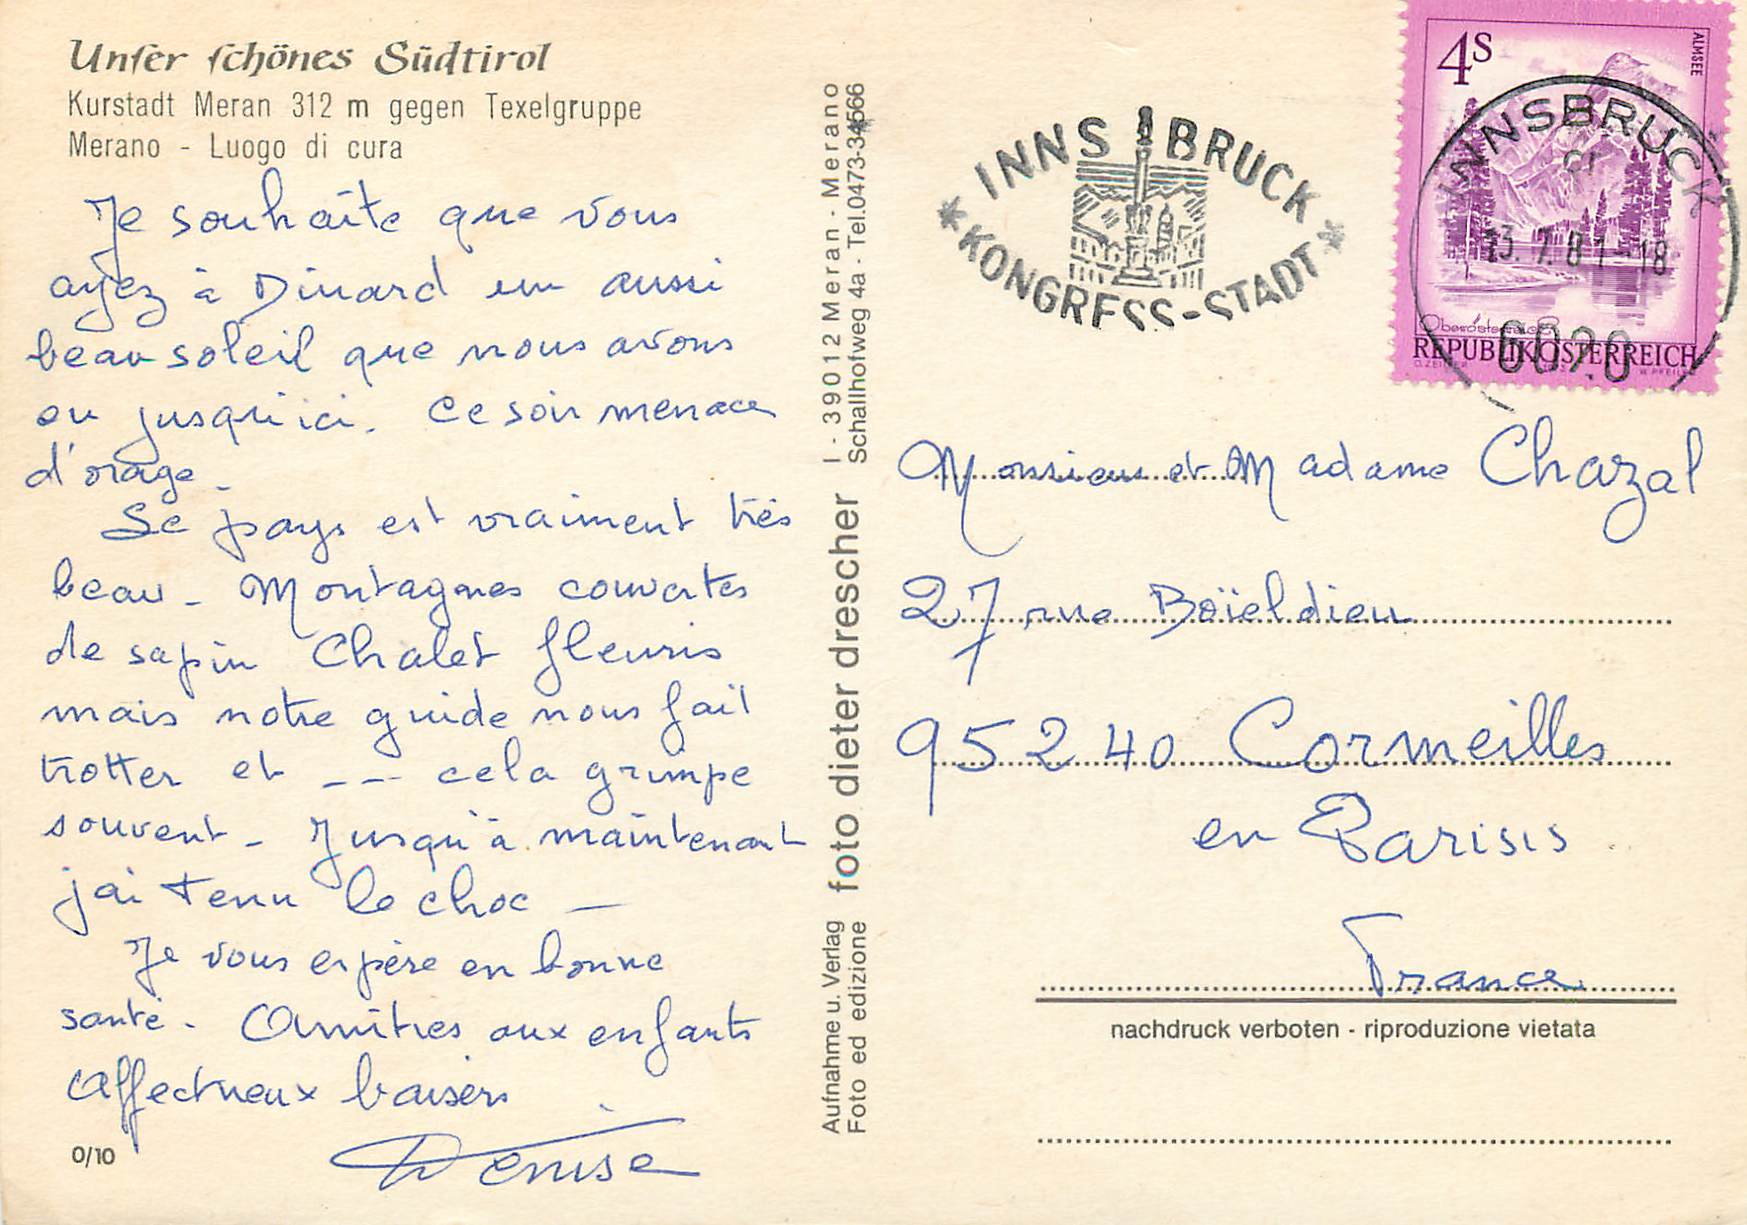 Unser schönes Südtirol
Kurstadt Meran 312 m gegen Texelgruppe
Merano - Luogo di cura
Je souhaite que vous
ayez à Dinard un aussi
beau soleil que nous avons
eu jusqu'ici. Ce soir menace
d'orage.
Le pays est vraiment très
beau - Montagnes couvertes
de sapin Chalet fleuris
mais notre guide nous fait
trotter et --- cela grimpe
souvent - Jusqu'à maintenant
j'ai tenu le choc -
Je vous espère en bonne
santé. Amitiés aux enfants
Affectueux baisers
Denise
0/10
Aufnahme u. Verlag foto dieter drescher I - 39012 Meran - Merano
Foto ed edizione Schallhofweg 4a - Tel.0473-34566
* INNSBRUCK *
KONGRESS-STADT
4S
ALMSEE
INNSBRUCK
13.7.81-18
6020
Oberösterreich
REPUBLIK ÖSTERREICH
Monsieur et Madame Chazal
27 rue Boïeldieu
95240 Cormeilles
en Parisis
France
nachdruck verboten - riproduzione vietata